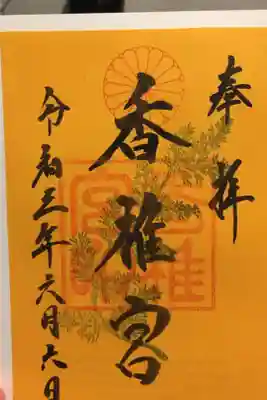 奉拝
香椎宮
令和三年六月六日